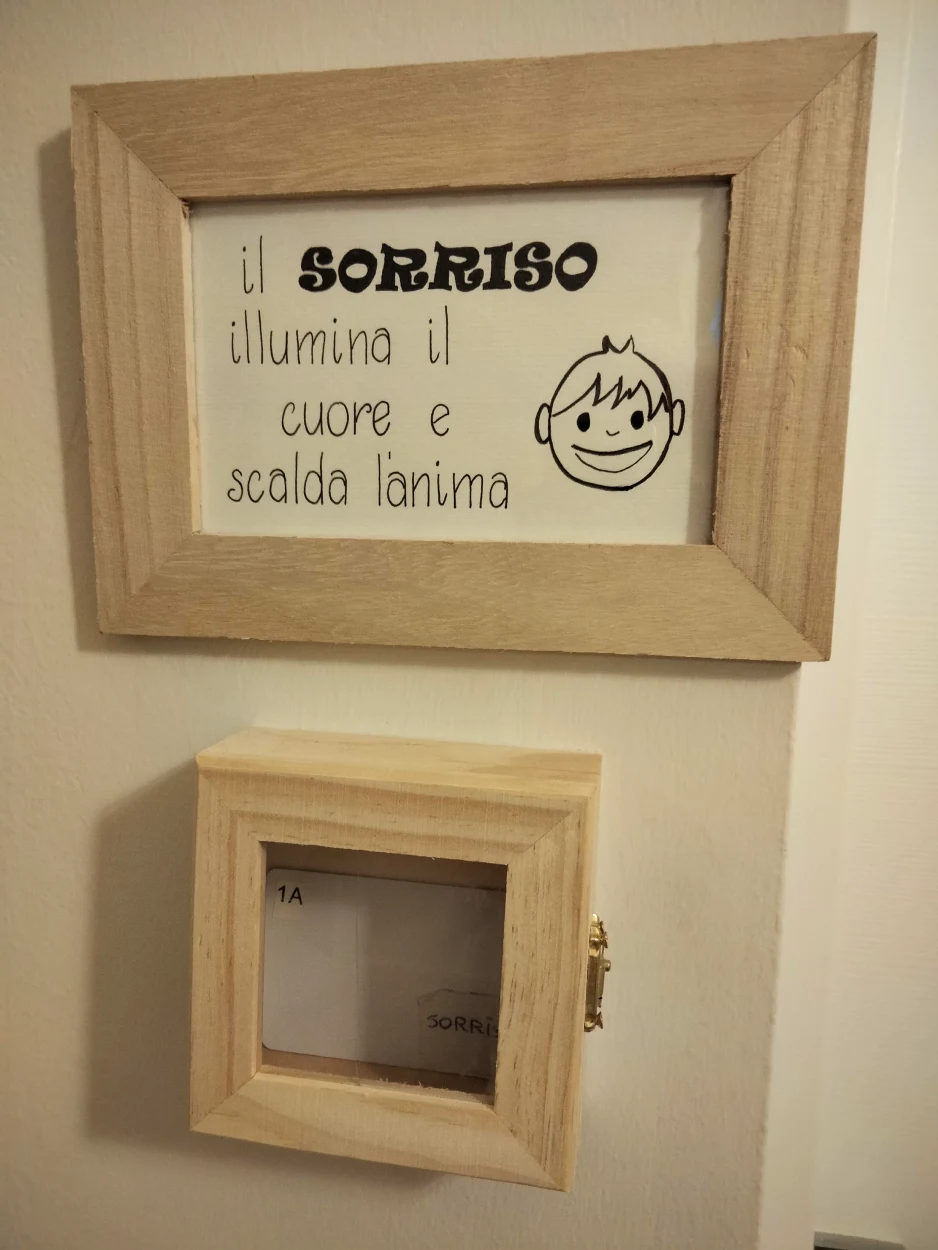 il SORRISO
illumina il
cuore e
scalda l'anima
1A
SORRIS